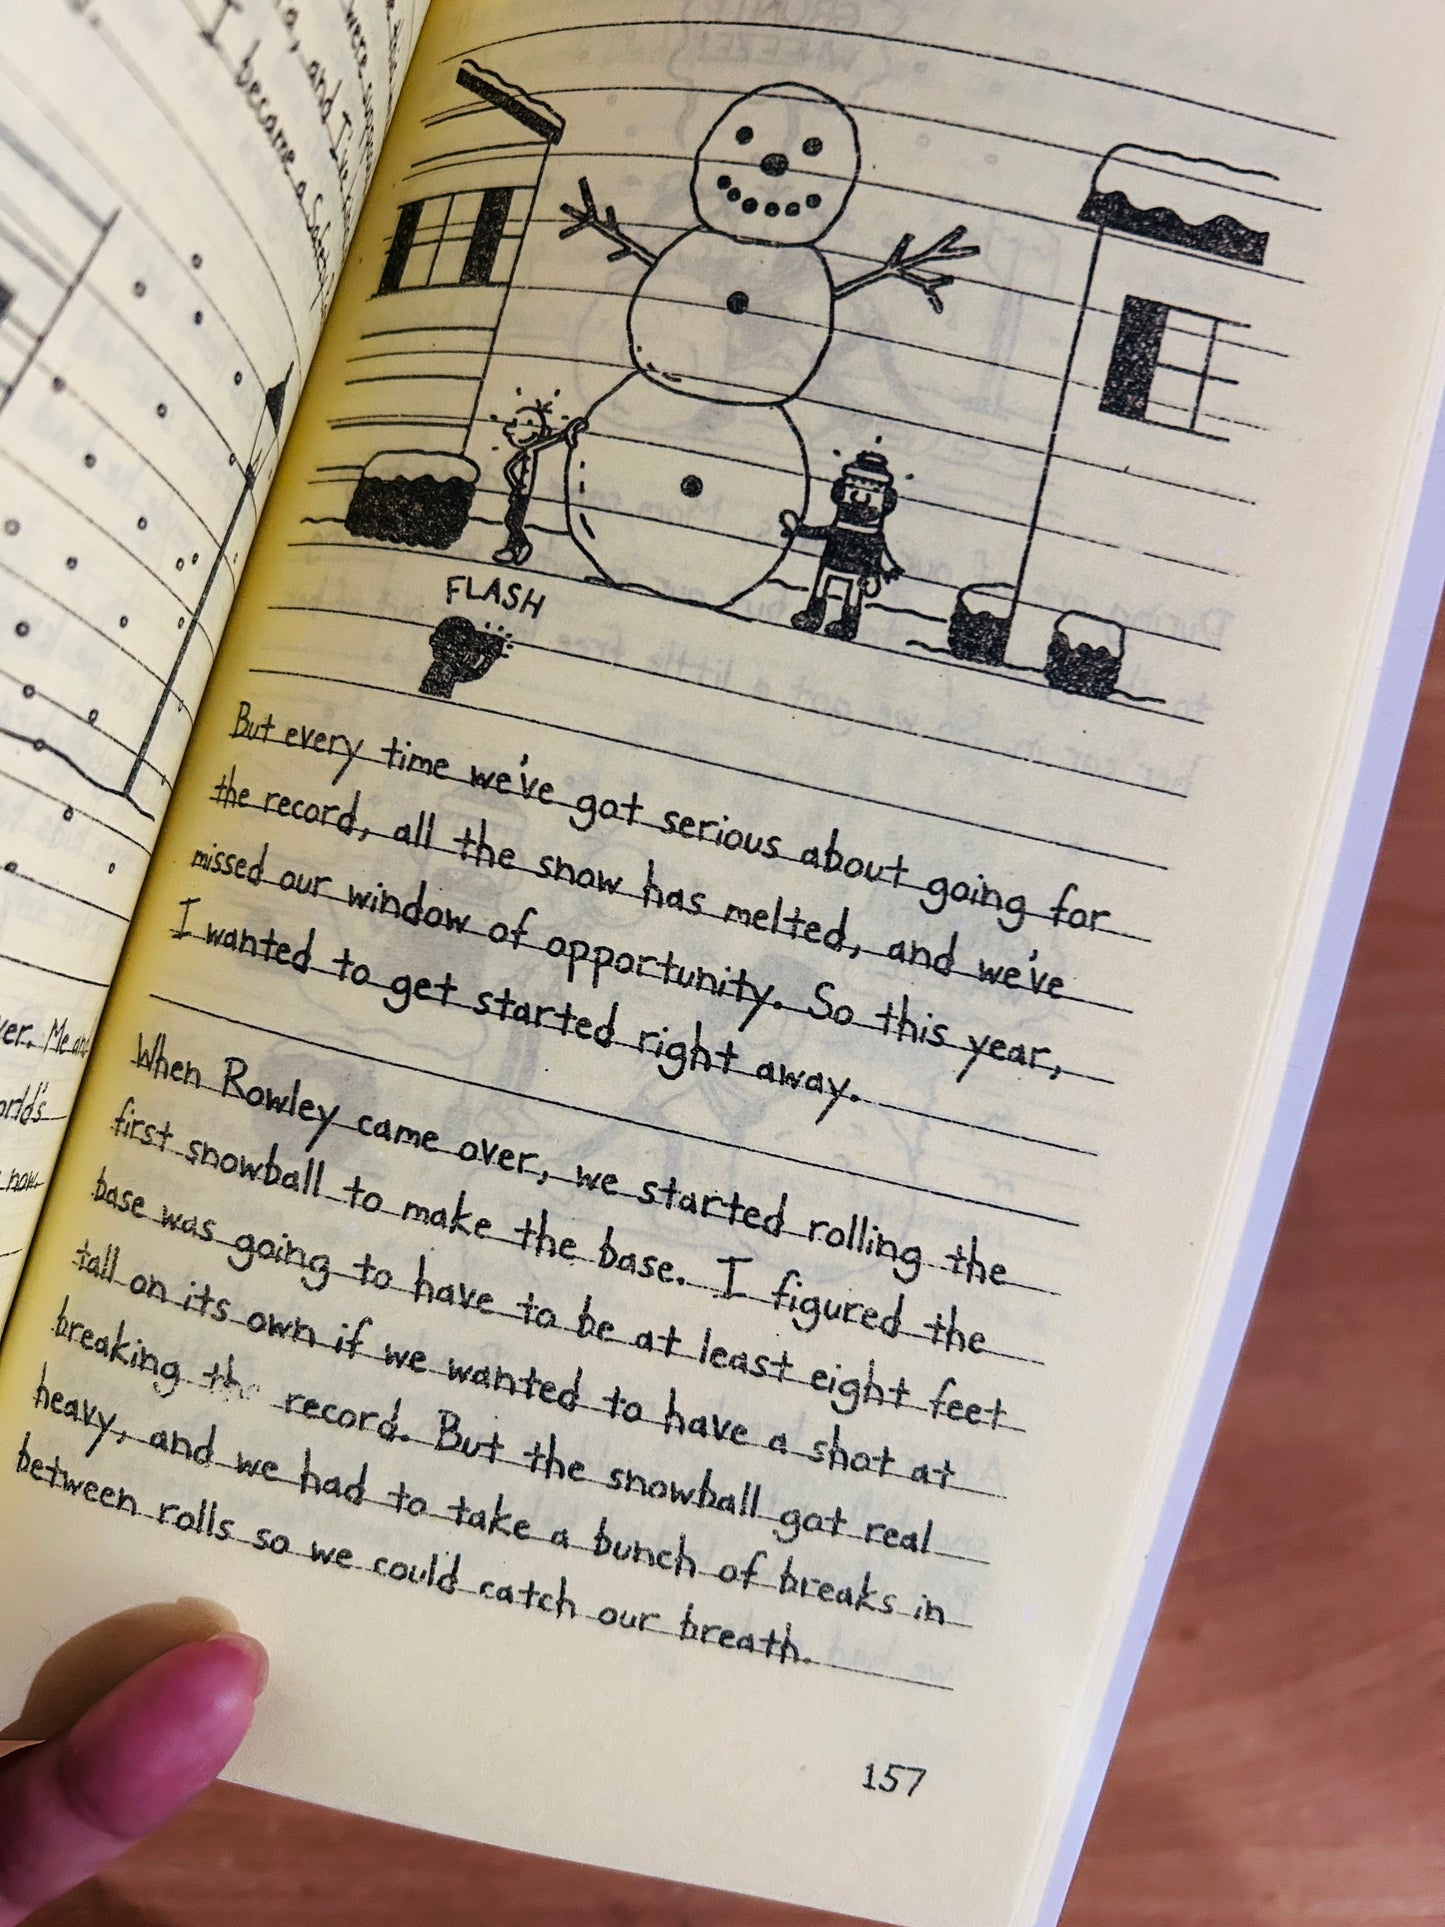 I became a Safety
er. Me and
orld's
now.
FLASH
But every time we've got serious about going for
the record, all the snow has melted, and we've
missed our window of opportunity. So this year,
I wanted to get started right away.
When Rowley came over, we started rolling the
first snowball to make the base. I figured the
base was going to have to be at least eight feet
tall on its own if we wanted to have a shot at
breaking the record. But the snowball got real
heavy, and we had to take a bunch of breaks in
between rolls so we could catch our breath.
157